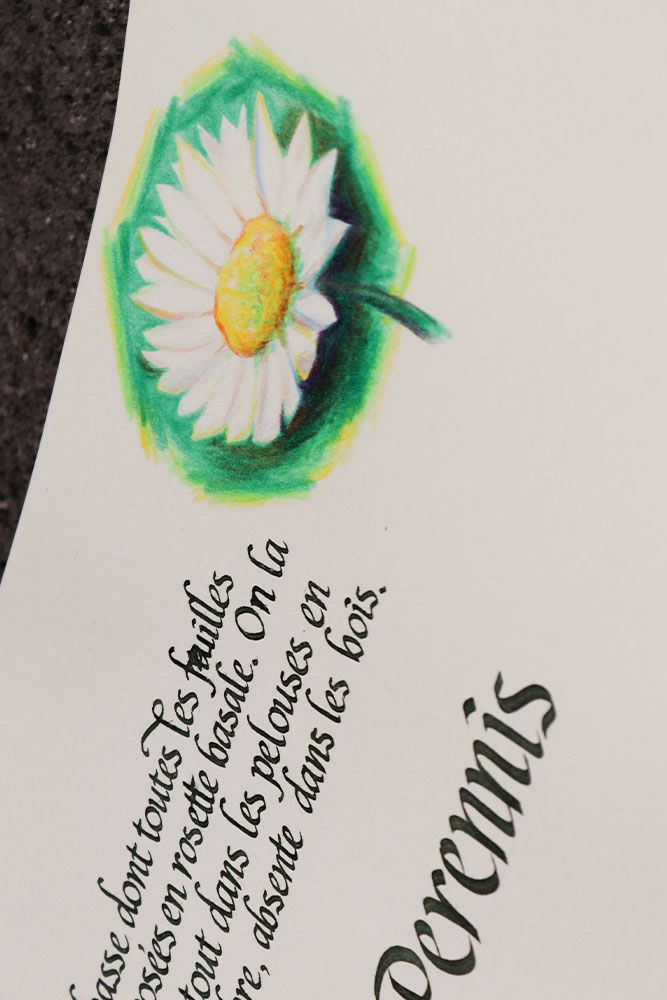 basse dont toutes les feuilles
posées en rosette basale. On la
tout dans les pelouses en
bre, absente dans les bois.
Perennis